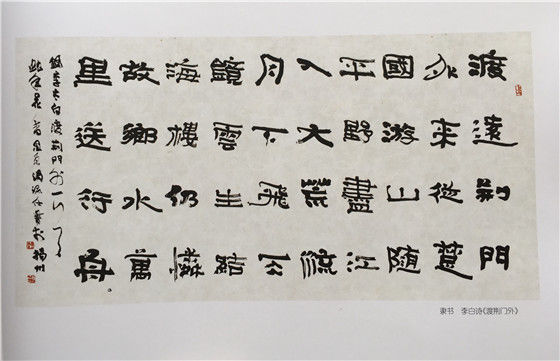 渡遠荆門
外來從楚
國游山随
平野盡江
入大荒流
月下飛天
鏡雲生結
海樓仍憐
故鄉水萬
里送行舟
録李太白渡荆門外一
揚州
隶书 李白诗《渡荆门外》